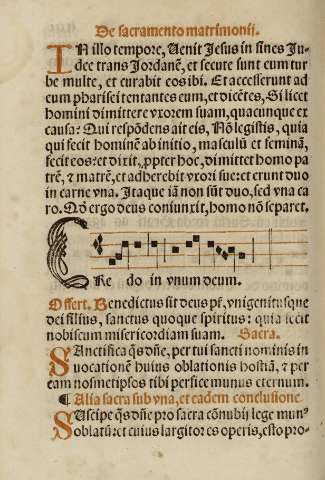 De sacramento matrimonii.
IN illo tempore, Uenit Jesus in fines Ju-
dee trans Jordanē, et secute sunt eum tur
be multe, et curabit eos ibi. Et accesserunt ad
eum pharisei tentantes eum, et dicētes, Si licet
homini dimittere vxorem suam, quacunque ex
causa? Qui respōdens ait eis, Nō legistis, quia
qui fecit hominē ab initio, masculū et feminā,
fecit eos: et dixit, ꝓpter hoc, dimittet homo pa
trē, et matrē, et adherebit vxori sue: et erunt duo
in carne vna. Itaque iā non sūt duo, sed vna ca
ro. Qď ergo deus coniunxit, homo nō separet.
CRe do in vnum deum.
Offert. Benedictus sit deus pr̄, vnigenitusque
dei filius, sanctus quoque spiritus: quia fecit
nobiscum misericordiam suam. Sacra.
SAnctifica q̄s dn̄e, per tui sancti nominis in
uocationē huius oblationis hostiā, et per
eam nosmetipsos tibi perfice munus eternum.
¶ Alia sacra sub vna, et eadem conclusione
SUscipe q̄s dn̄e pro sacra cōnubij lege mun⁹
oblatū: et cuius largitor es operis, esto pro-